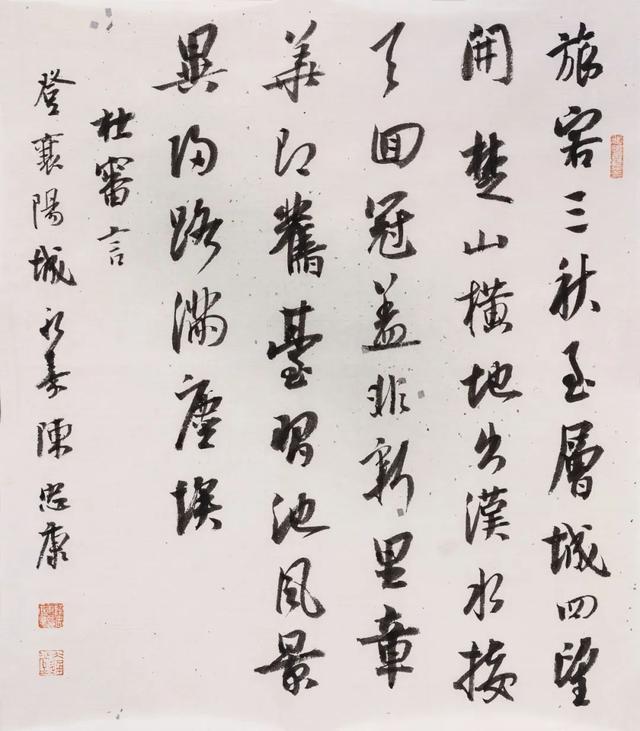 旅客三秋至層城四望
開楚山橫地出漢水接
天囬冠盖非新里章
華即舊臺習池風景
異歸路滿塵埃
杜審言
登襄陽城永嘉陳忠康